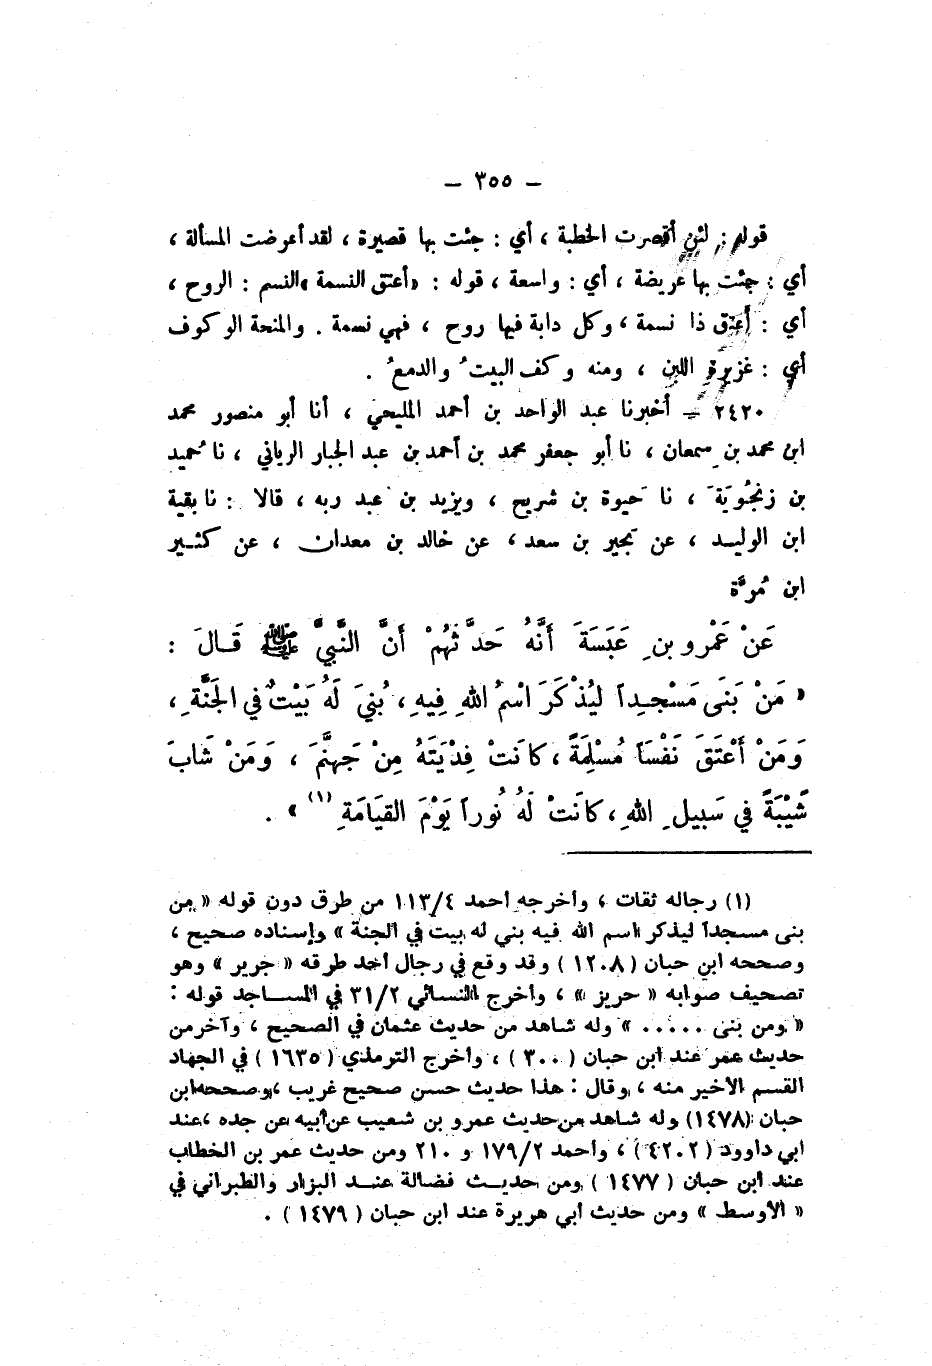 – ٣٥٥ –
قوله : لئن أقصرت الخطبة ، أي : جئت بها قصيرة ، لقد أعرضت المسألة ،
أي : جئت بها عريضة ، أي : واسعة ، قوله : « أعتق النسمة » النسم : الروح ،
أي : أعتق ذا نسمة ، وكل دابة فيها روح ، فهي نسمة . والمنحة الوكوف
أي : غزيرة اللبن ، ومنه وكف البيتُ والدمعُ .
٢٤٢٠ – أخبرنا عبد الواحد بن أحمد المليحي ، أنا أبو منصور محمد
ابن محمد بن سمعان ، نا أبو جعفر محمد بن أحمد بن عبد الجبار الرياني ، نا حُميد
بن زنجُويَة َ ، نا حَيوة بن شريح ، ويزيد بن عبد ربه ، قالا : نا بقية
ابن الوليد ، عن بَحير بن سعد ، عن خالد بن معدان ، عن كثير
ابن مُرَّة
عَنْ عَمْرو بنِ عَبَسَةَ أَنَّهُ حَدَّثَهُمْ أَنَّ النَّبِيَّ ﷺ قَالَ :
« مَنْ بَنَى مَسْجِداً لِيُذْكَرَ اسْمُ اللهِ فِيهِ ، بُنِيَ لَهُ بَيْتٌ في الجَنَّةِ ،
وَمَنْ أَعْتَقَ نَفْسَاً مُسْلِمَةً ، كانَتْ فِدْيَتَهُ مِنْ جَهنَّمَ ، وَمَنْ شَابَ
شَيْبَةً في سَبِيلِ اللهِ ، كانَتْ لَهُ نُوراً يَوْمَ القيَامَةِ (١) » .
(١) رجاله ثقات ، وأخرجه احمد ١١٣/٤ من طرق دون قوله « من
بنى مسجداً ليذكر اسم الله فيه بني له بيت في الجنة » وإسناده صحيح ،
وصححه ابن حبان ( ١٢٠٨ ) وقد وقع في رجال أحد طرقه « جرير » وهو
تصحيف صوابه « حريز » ، وأخرج النسائي ٣١/٢ في المساجد قوله :
« ومن بنى ..... » وله شاهد من حديث عثمان في الصحيح ، وآخر من
حديث عمر عند ابن حبان ( ٣٠٠ ) ، وأخرج الترمذي ( ١٦٣٥ ) في الجهاد
القسم الاخير منه ، وقال : هذا حديث حسن صحيح غريب ، وصححه ابن
حبان (١٤٧٨) وله شاهد من حديث عمرو بن شعيب عن أبيه عن جده ، عند
ابي داوود ( ٤٢٠٢ ) ، وأحمد ١٧٩/٢ و ٢١٠ ومن حديث عمر بن الخطاب
عند ابن حبان ( ١٤٧٧ ) ومن حديث فضالة عند البزار والطبراني في
« الأوسط » ومن حديث أبي هريرة عند ابن حبان ( ١٤٧٩ ) .